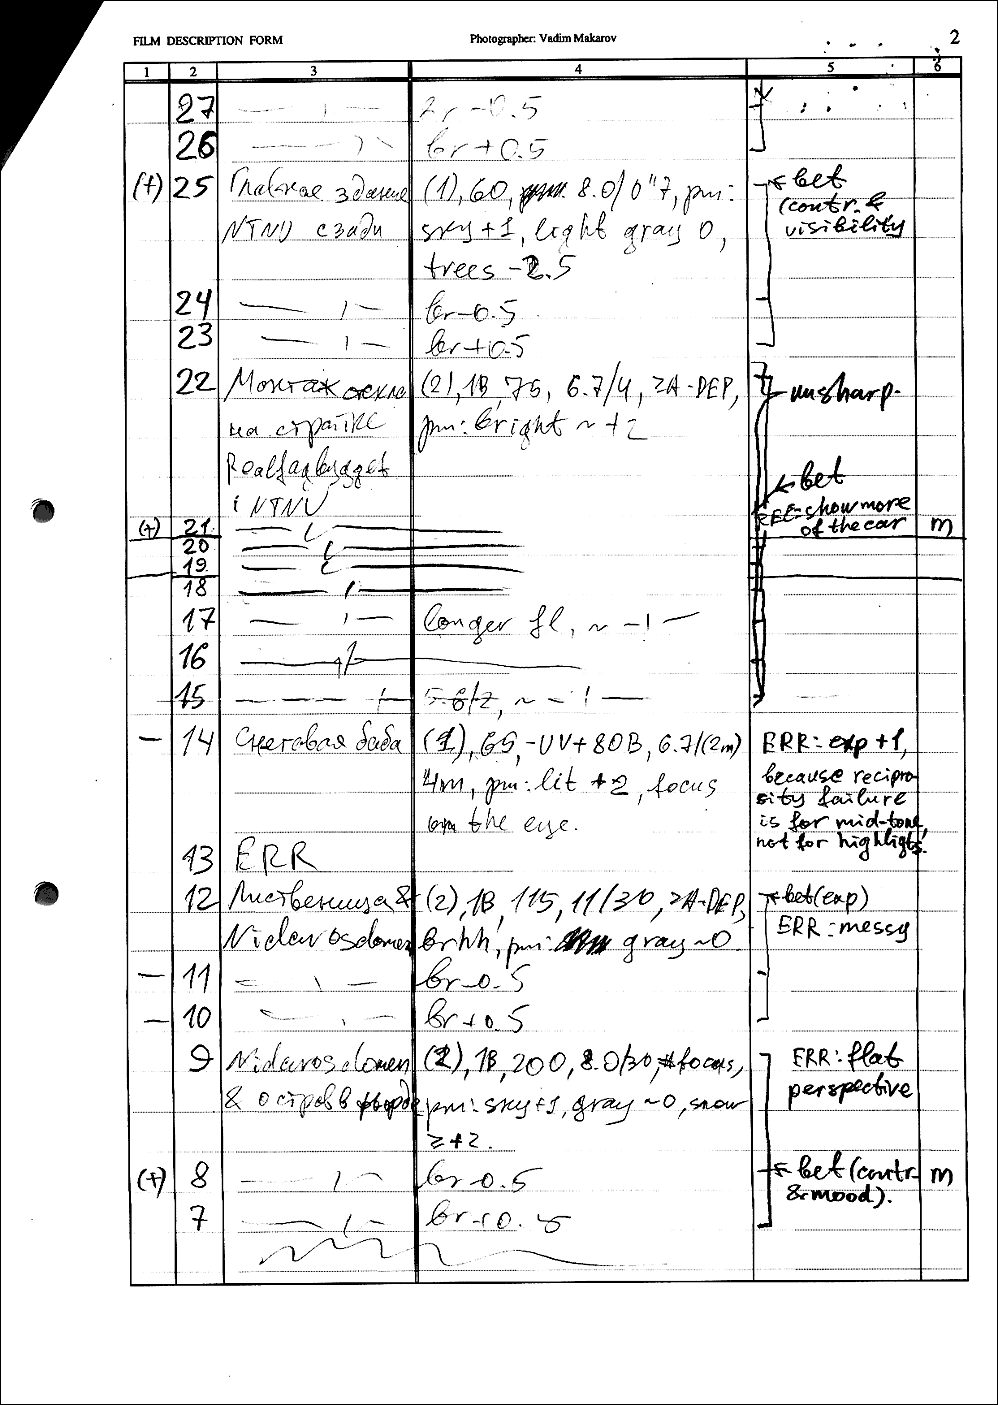 FILM DESCRIPTION FORM Photographer: Vadim Makarov 2
1 2 3 4 5 6
27 — ı — br-0.5
26 — ı — br+0.5
(+) 25 Главное здание (1), 60, 8.0/0"7, pm: bet
NTNU сзади sky+1, light gray 0, (contr. & visibility
trees -2.5
24 — ı — br-0.5
23 — ı — br+0.5
22 Монтаж (2), 1B, 75, 6.7/4, 2A-DEP, unsharp.
на стройке pm: bright ~ +2
Realfagbygget
i NTNU bet
(+) 21 — ı — show more of the car m
20 — ı —
19 — ı —
18 — ı —
17 — ı — longer fl, ~ -ı—
16 — ı —
15 — ı — 5.6/2, ~ -ı—
— 14 Снеговая баба (1), 65, -UV+80B, 6.7/(2m) ERR: exp +1,
4m, pm: lit +2, focus because recipro-
on the eye. sity failure
is for mid-tone,
not for highligts.
13 ERR
12 Лиственница & (2), 1B, 115, 11/30, 2A-DEP, bet(exp)
Nidarosdomen brhh, pm: gray ~0 ERR: messy
— 11 — ı — br-0.5
— 10 — ı — br+0.5
9 Nidarosdomen (2), 1B, 200, 8.0/30, focus, ERR: flat
& остров в фьорде pm: sky+1, gray ~0, snow perspective
≥+2.
(+) 8 — ı — br-0.5 bet (contr. m
& mood).
7 — ı — br+0.5